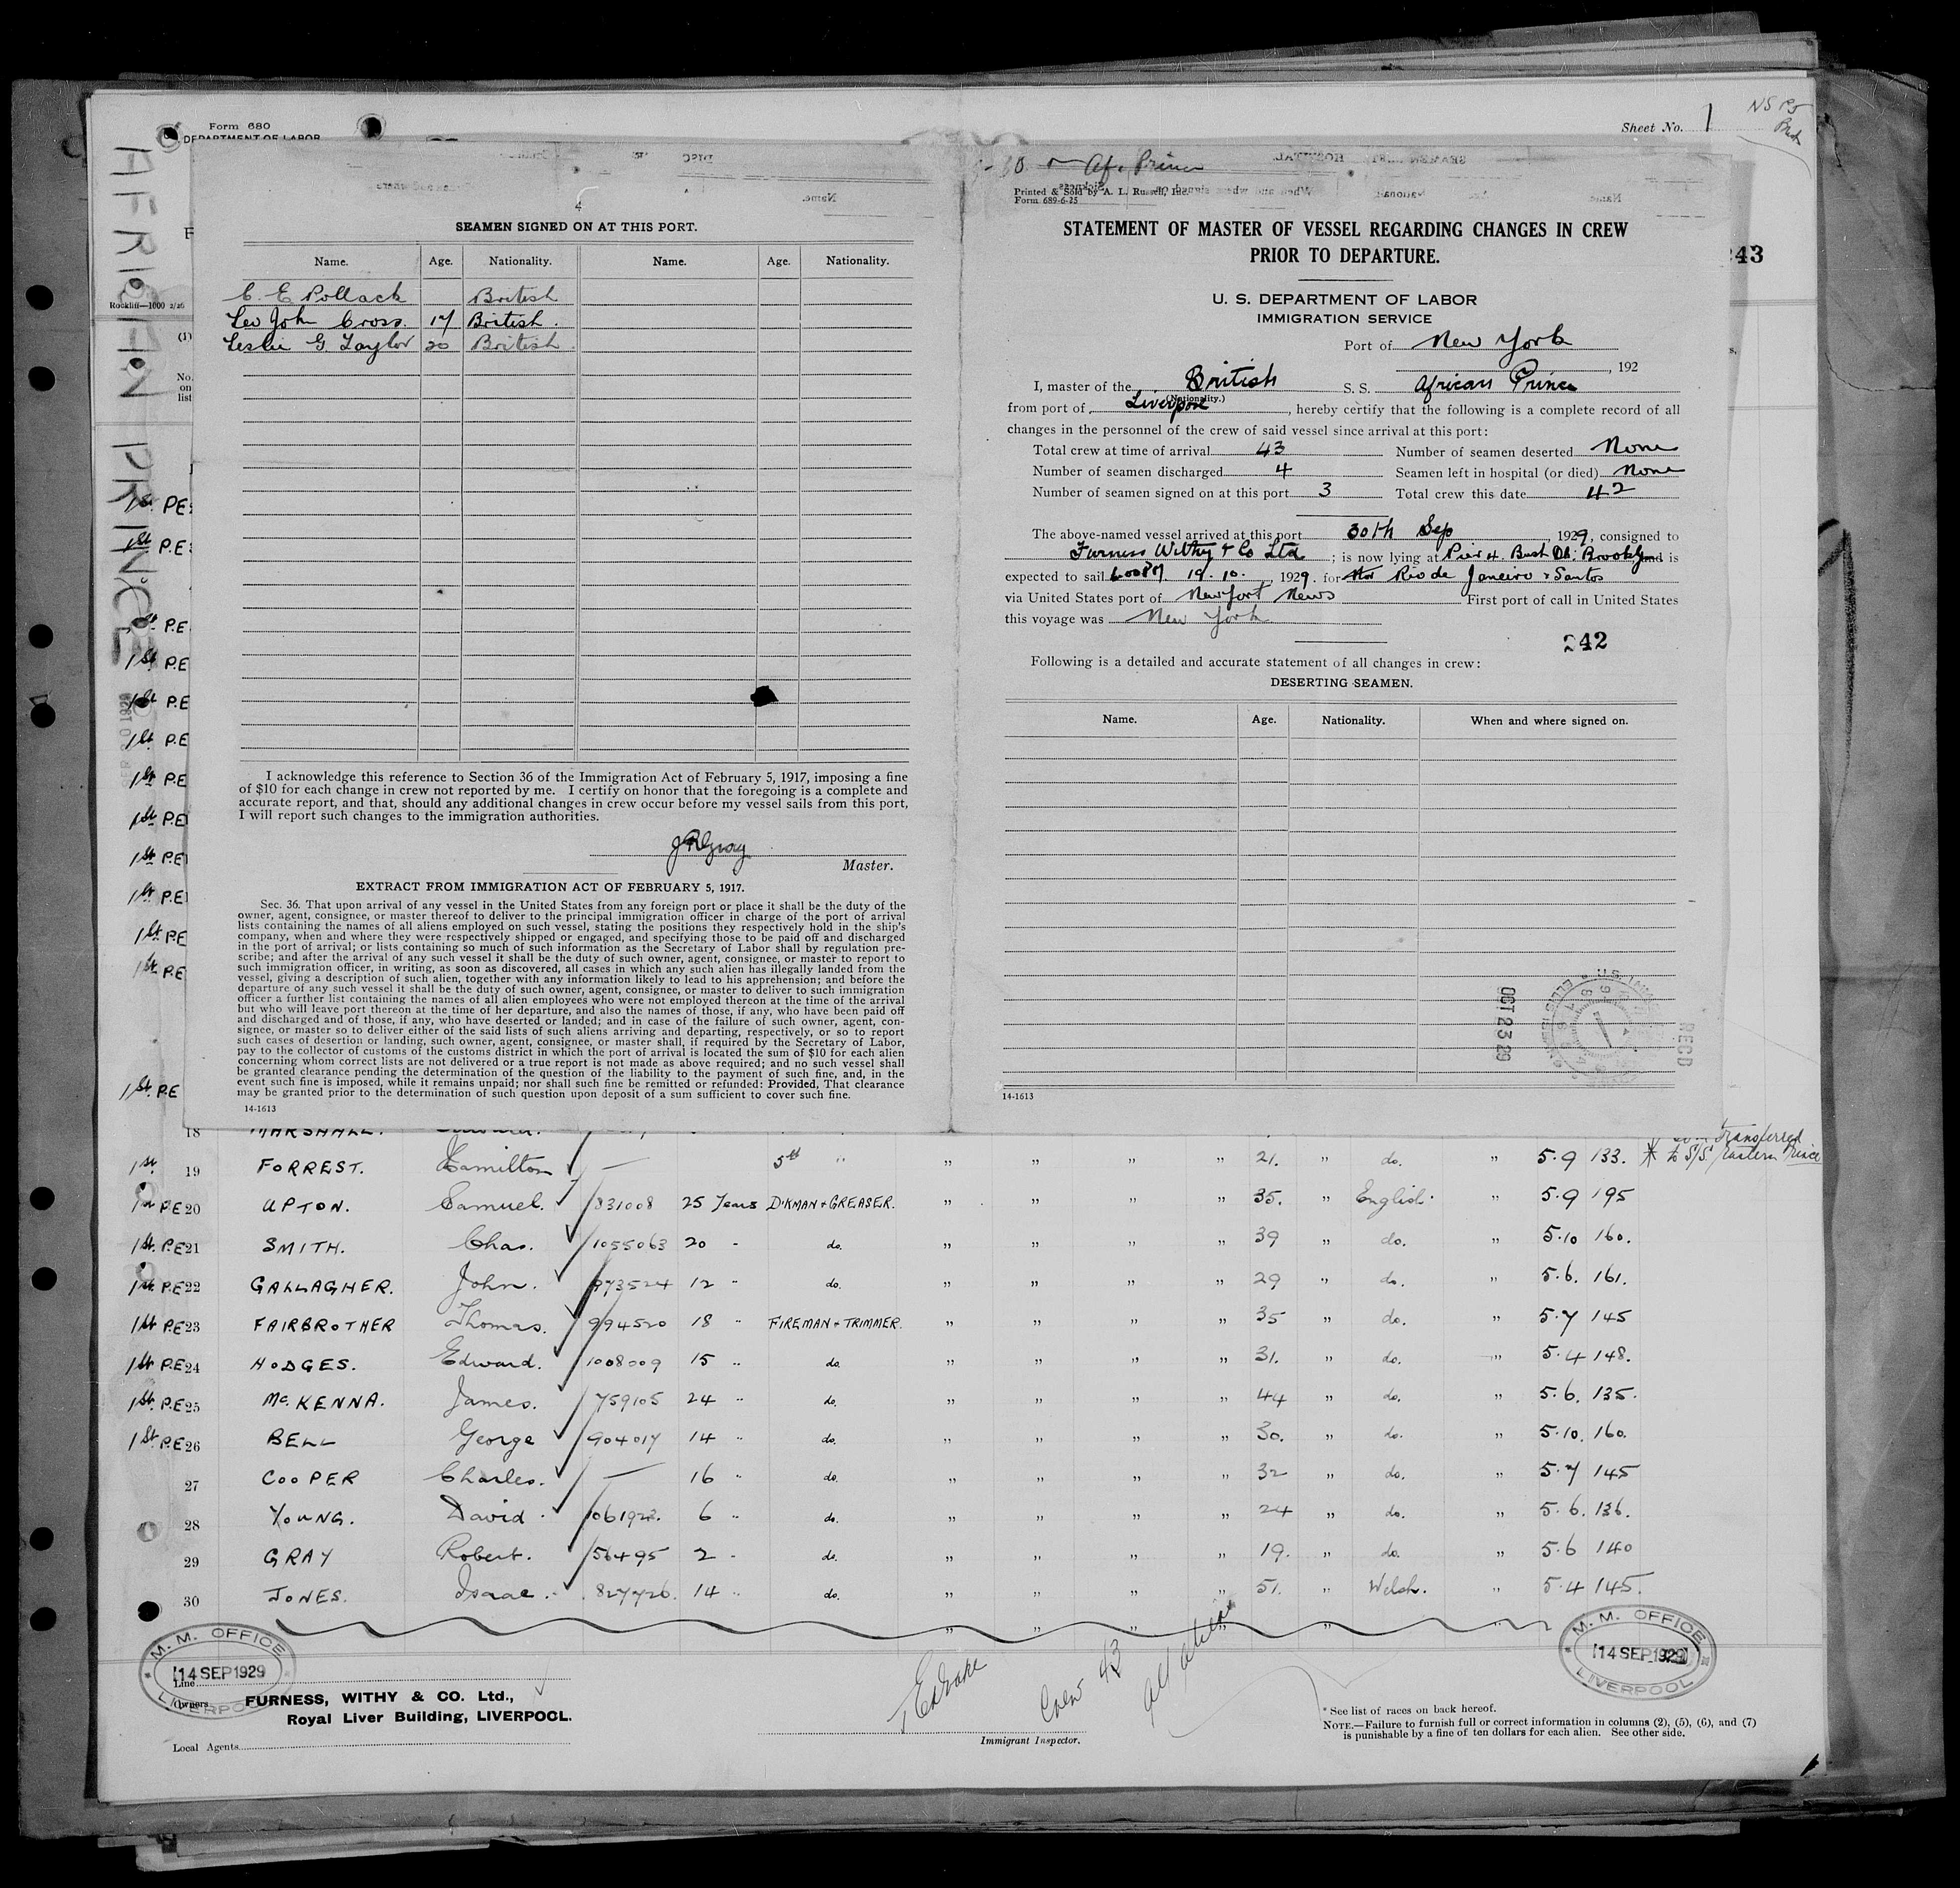 Form 680
DEPARTMENT OF LABOR
Sheet No. 1
AFRICAN PRINCE
Rockliff—1000 2/26
(1)
No.
on
list
243
4
SEAMEN SIGNED ON AT THIS PORT.
Name. Age. Nationality. Name. Age. Nationality.
C. E Pollack British
Leo John Cross. 17 British.
Leslie G. Taylor 20 British
I acknowledge this reference to Section 36 of the Immigration Act of February 5, 1917, imposing a fine
of $10 for each change in crew not reported by me. I certify on honor that the foregoing is a complete and
accurate report, and that, should any additional changes in crew occur before my vessel sails from this port,
I will report such changes to the immigration authorities.
JRGray
Master.
EXTRACT FROM IMMIGRATION ACT OF FEBRUARY 5, 1917.
Sec. 36. That upon arrival of any vessel in the United States from any foreign port or place it shall be the duty of the
owner, agent, consignee, or master thereof to deliver to the principal immigration officer in charge of the port of arrival
lists containing the names of all aliens employed on such vessel, stating the positions they respectively hold in the ship's
company, when and where they were respectively shipped or engaged, and specifying those to be paid off and discharged
in the port of arrival; or lists containing so much of such information as the Secretary of Labor shall by regulation pre-
scribe; and after the arrival of any such vessel it shall be the duty of such owner, agent, consignee, or master to report to
such immigration officer, in writing, as soon as discovered, all cases in which any such alien has illegally landed from the
vessel, giving a description of such alien, together with any information likely to lead to his apprehension; and before the
departure of any such vessel it shall be the duty of such owner, agent, consignee, or master to deliver to such immigration
officer a further list containing the names of all alien employees who were not employed thereon at the time of the arrival
but who will leave port thereon at the time of her departure, and also the names of those, if any, who have been paid off
and discharged and of those, if any, who have deserted or landed; and in case of the failure of such owner, agent, con-
signee, or master so to deliver either of the said lists of such aliens arriving and departing, respectively, or so to report
such cases of desertion or landing, such owner, agent, consignee, or master shall, if required by the Secretary of Labor,
pay to the collector of customs of the customs district in which the port of arrival is located the sum of $10 for each alien
concerning whom correct lists are not delivered or a true report is not made as above required; and no such vessel shall
be granted clearance pending the determination of the question of the liability to the payment of such fine, and, in the
event such fine is imposed, while it remains unpaid; nor shall such fine be remitted or refunded: Provided, That clearance
may be granted prior to the determination of such question upon deposit of a sum sufficient to cover such fine.
14-1613
Af. Prince
Printed & Sold by A. L. Russell, Inc.
Form 689-6-25
STATEMENT OF MASTER OF VESSEL REGARDING CHANGES IN CREW
PRIOR TO DEPARTURE.
U. S. DEPARTMENT OF LABOR
IMMIGRATION SERVICE
Port of New York
, 192
I, master of the British S. S. African Prince
(Nationality.)
from port of Liverpool, hereby certify that the following is a complete record of all
changes in the personnel of the crew of said vessel since arrival at this port:
Total crew at time of arrival 43 Number of seamen deserted None
Number of seamen discharged 4 Seamen left in hospital (or died) None
Number of seamen signed on at this port 3 Total crew this date 42
The above-named vessel arrived at this port 30th Sep, 1929, consigned to
Furness Withy & Co Ltd; is now lying at Pier 4. Bush Dk: Brooklyn and is
expected to sail 6.00PM. 19. 10., 1929. for Rio de Janeiro & Santos
via United States port of Newport News First port of call in United States
this voyage was New York
242
Following is a detailed and accurate statement of all changes in crew:
DESERTING SEAMEN.
Name. Age. Nationality. When and where signed on.
OCT 23 29
RECD
14-1613
18 MARSHALL.
transferred
1st 19 FORREST. Hamilton — 5th " " " " " 21. " do. " 5.9 133. * to S/S. Eastern Prince
1st P.E 20 UPTON. Samuel. 831008 25 Years D'KMAN & GREASER. " " " " 35. " English. " 5.9 195
1st. P.E 21 SMITH. Chas. 1055063 20 " do. " " " " 39 " do. " 5.10 160.
1st P.E 22 GALLAGHER. John. 973524 12 " do. " " " " 29 " do. " 5.6. 161.
1st P.E 23 FAIRBROTHER Thomas. 994520 18 " FIREMAN & TRIMMER. " " " " 35 " do. " 5.7 145
1st P.E 24 HODGES. Edward. 1008009 15 " do. " " " " 31. " do. " 5.4 148.
1st. P.E 25 McKENNA. James. 759105 24 " do. " " " " 44 " do. " 5.6. 135.
1st P.E 26 BELL George 904017 14 " do. " " " " 30. " do. " 5.10. 160.
27 COOPER Charles. — 16 " do. " " " " 32 " do. " 5.7 145
28 YOUNG. David. 1061923. 6 " do. " " " " 24 " do. " 5.6. 136.
29 GRAY Robert. 56495 2 " do. " " " " 19. " do. " 5.6 140
30 JONES. Isaac. 827726. 14 " do. " " " " 51. " Welsh. " 5.4 145.
M. M. OFFICE
14 SEP 1929
LIVERPOOL
Line
Owners FURNESS, WITHY & CO. Ltd.,
Royal Liver Building, LIVERPOOL.
Local Agents
Crew 43
Immigrant Inspector.
M. M. OFFICE
14 SEP 1929
LIVERPOOL
* See list of races on back hereof.
NOTE.—Failure to furnish full or correct information in columns (2), (5), (6), and (7)
is punishable by a fine of ten dollars for each alien. See other side.